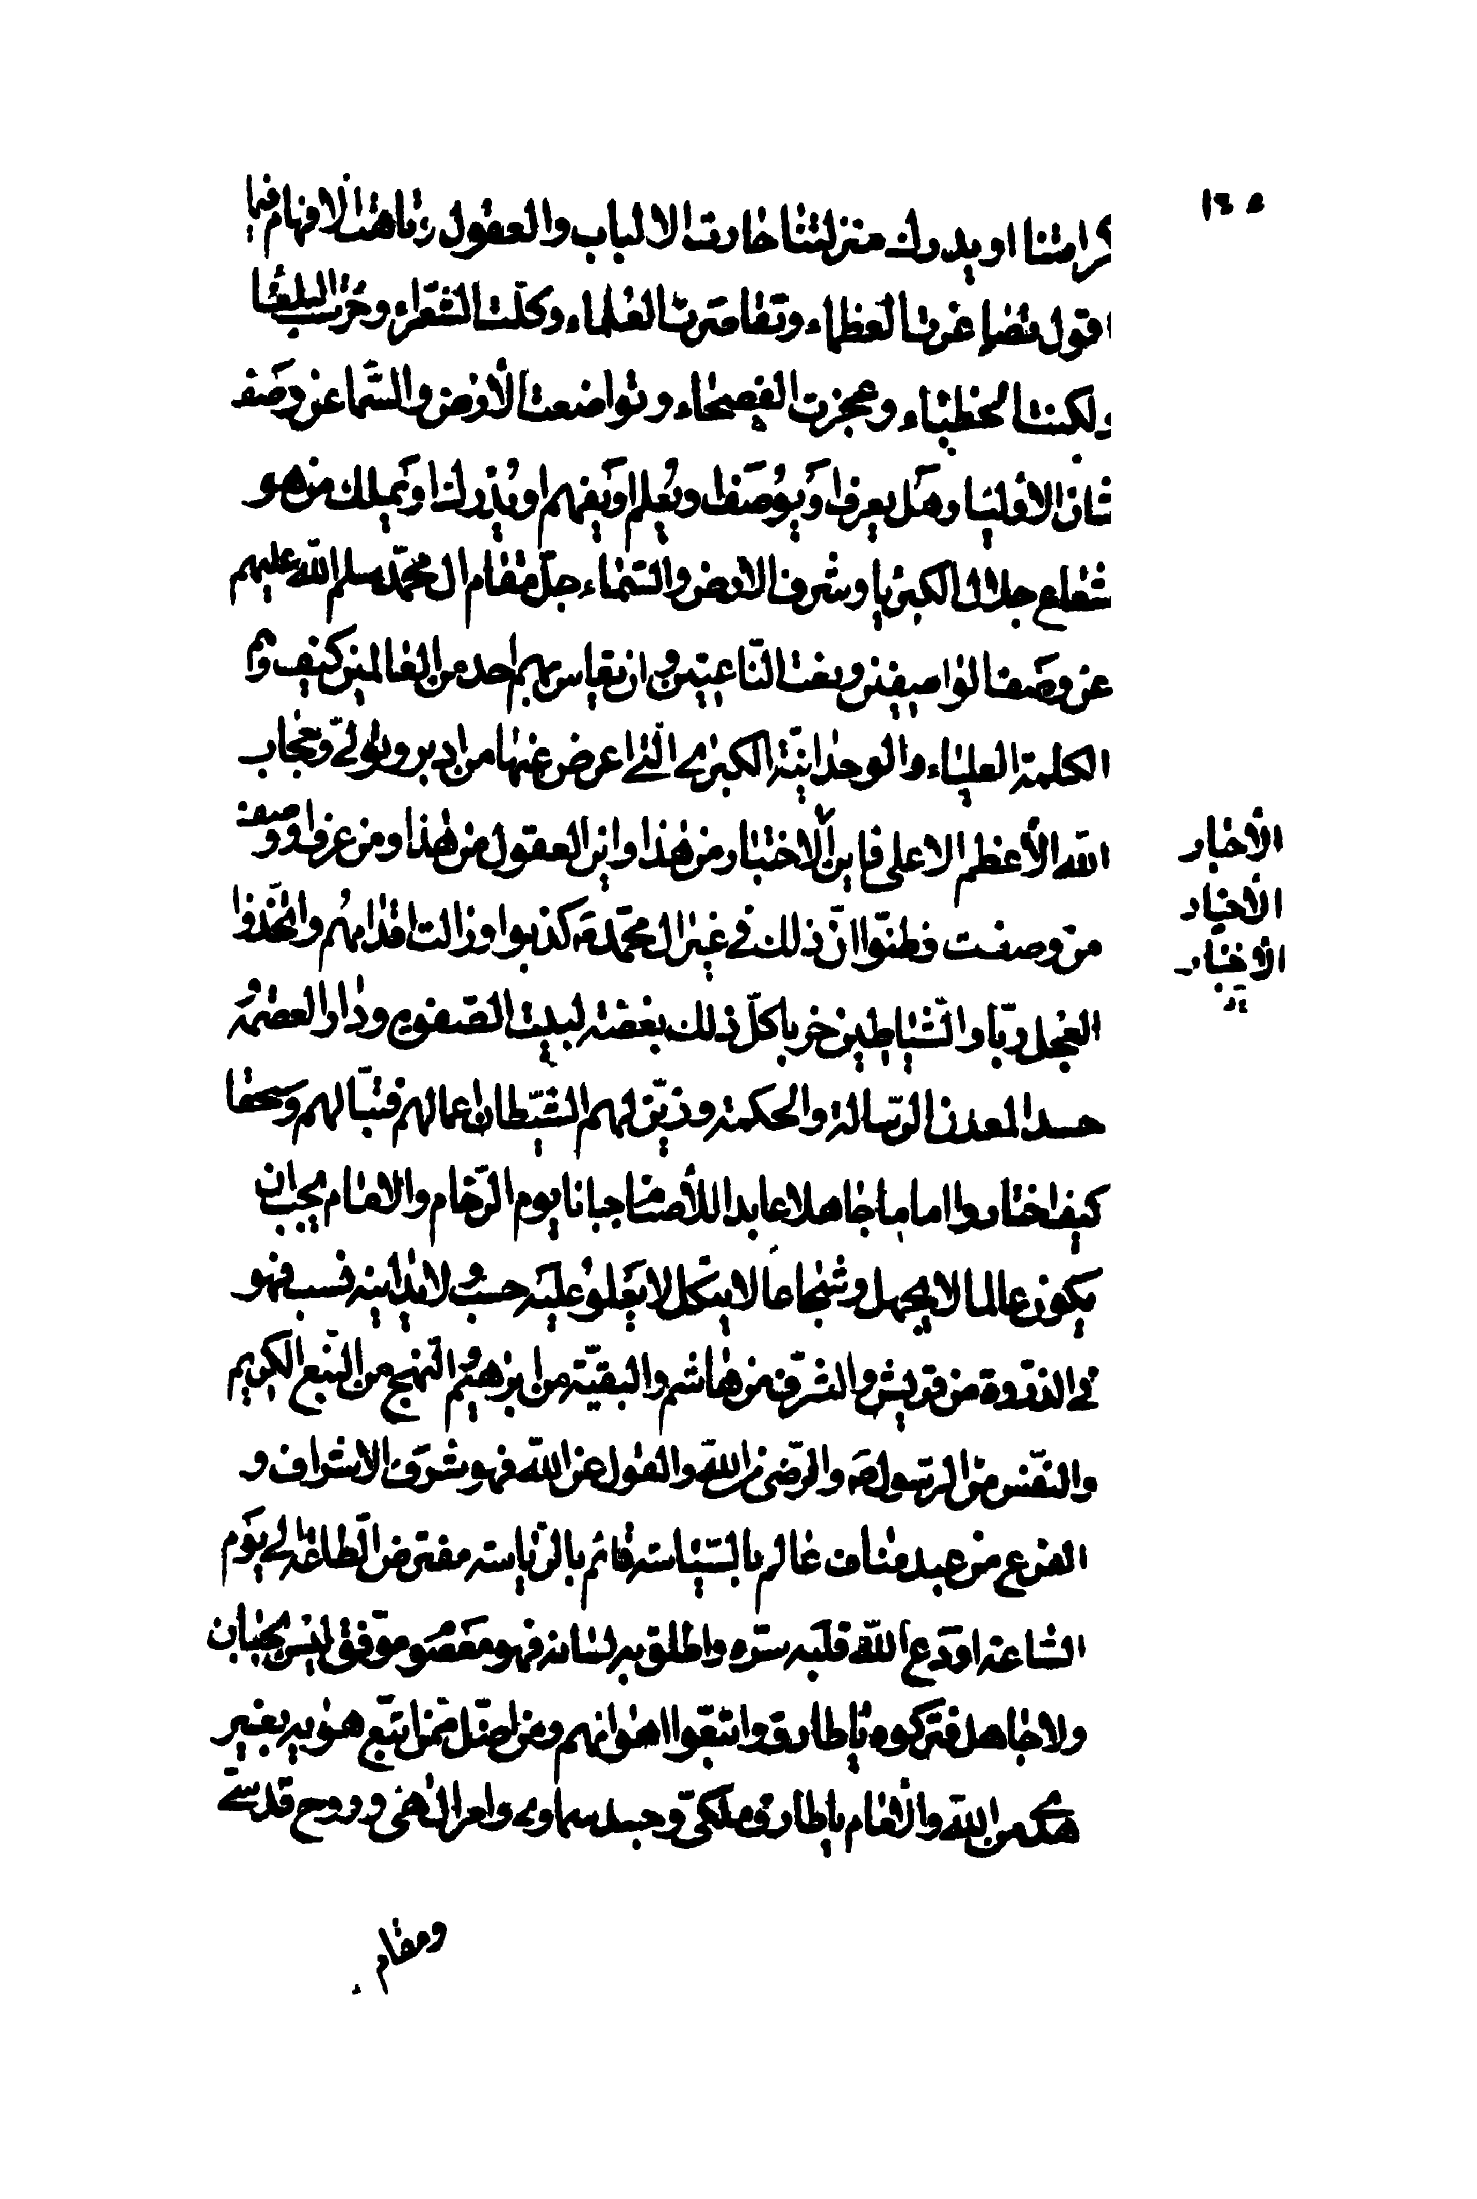 ١٤٥
كرامتنا او يدرك منزلتنا حارت الالباب والعقول وتاهت الافهام فيما
اقول تصاغرت العظماء وتقاصرت العلماء وكلت الشعراء وخرست البلغاء
ولكنت الخطباء وعجزت الفصحاء وتواضعت الارض والسماء عن وصف
شان الاولياء وهل يعرف او يوصف او يعلم او يفهم او يدرك او يملك من هو
شعاع جلال الكبرياء وشرف الارض والسماء جل مقام ال محمد سلم الله عليهم
عن وصف الواصفين ونعت الناعتين وان يقاس بهم احد من العالمين كيف وهم
الكلمة العلياء والوحدانية الكبرى التى اعرض عنها من ادبر وتولى وحجاب
الله الأعظم الاعلى فاين الاختيار من هذا واين العقول من هذا ومن عرف او وصف
من وصفت فظنوا ان ذلك في غير ال محمد كذبوا وزالت اقدامهم واتخذوا
العجل ربا والشياطين حزبا كل ذلك بغضة لبيت الصفوة ودار العصمة
حسدا لمعدن الرسالة والحكمة وزين لهم الشيطان اعمالهم فتبا لهم وسحقا
كيف اختاروا اماما جاهلا عابدا للأصنام جبانا يوم الزحام والامام يجب ان
يكون عالما لا يجهل وشجاعا لا ينكل لا يعلو عليه حسب ولا يدانيه نسب فهو
في الذروة من قريش والشرف من هاشم والبقية من ابراهيم والنهج من النبع الكريم
والنفس من الرسول والرضى من الله والقول عن الله فهو شرف الاشراف و
الفرع من عبد مناف عالم بالسياسة قائم بالرياسة مفترض الطاعة الى يوم
الساعة اودع الله قلبه سره واطلق به لسانه فهو معصوم موفق ليس بجبان
ولا جاهل فتركوه يا طارق واتبعوا اهوائهم ومن اضل ممن اتبع هويه بغير
هدى من الله والامام يا طارق ملكى وجسد سماوى وامر الهى وروح قدسى
ومقام
الأخبار
الأخيار
الأختيار